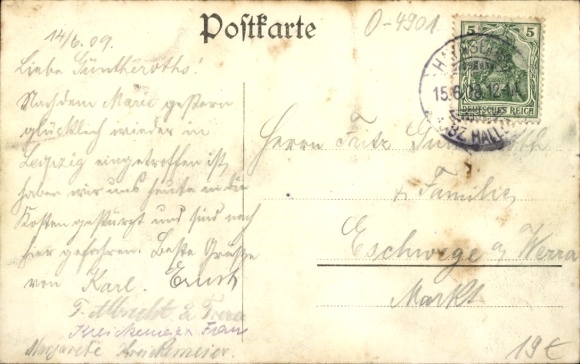 Postkarte
O-4901
14/6.09.
Liebe Güntheroths!
Nachdem Marie gestern
glücklich wieder in
Leipzig eingetroffen ist,
haben wir uns heute in die
Kosten gestürzt und sind nach
hier gefahren. Beste Grüße
von Karl. Ernst
F. Albrecht & Frau
Kreickemeier Frau
Margarete Kreickemeier.
5 5
DEUTSCHES REICH
15.6. 12-1
BZ. HALLE
Herrn Fritz
& Familie
Eschwege a/ Werra
Markt
19€